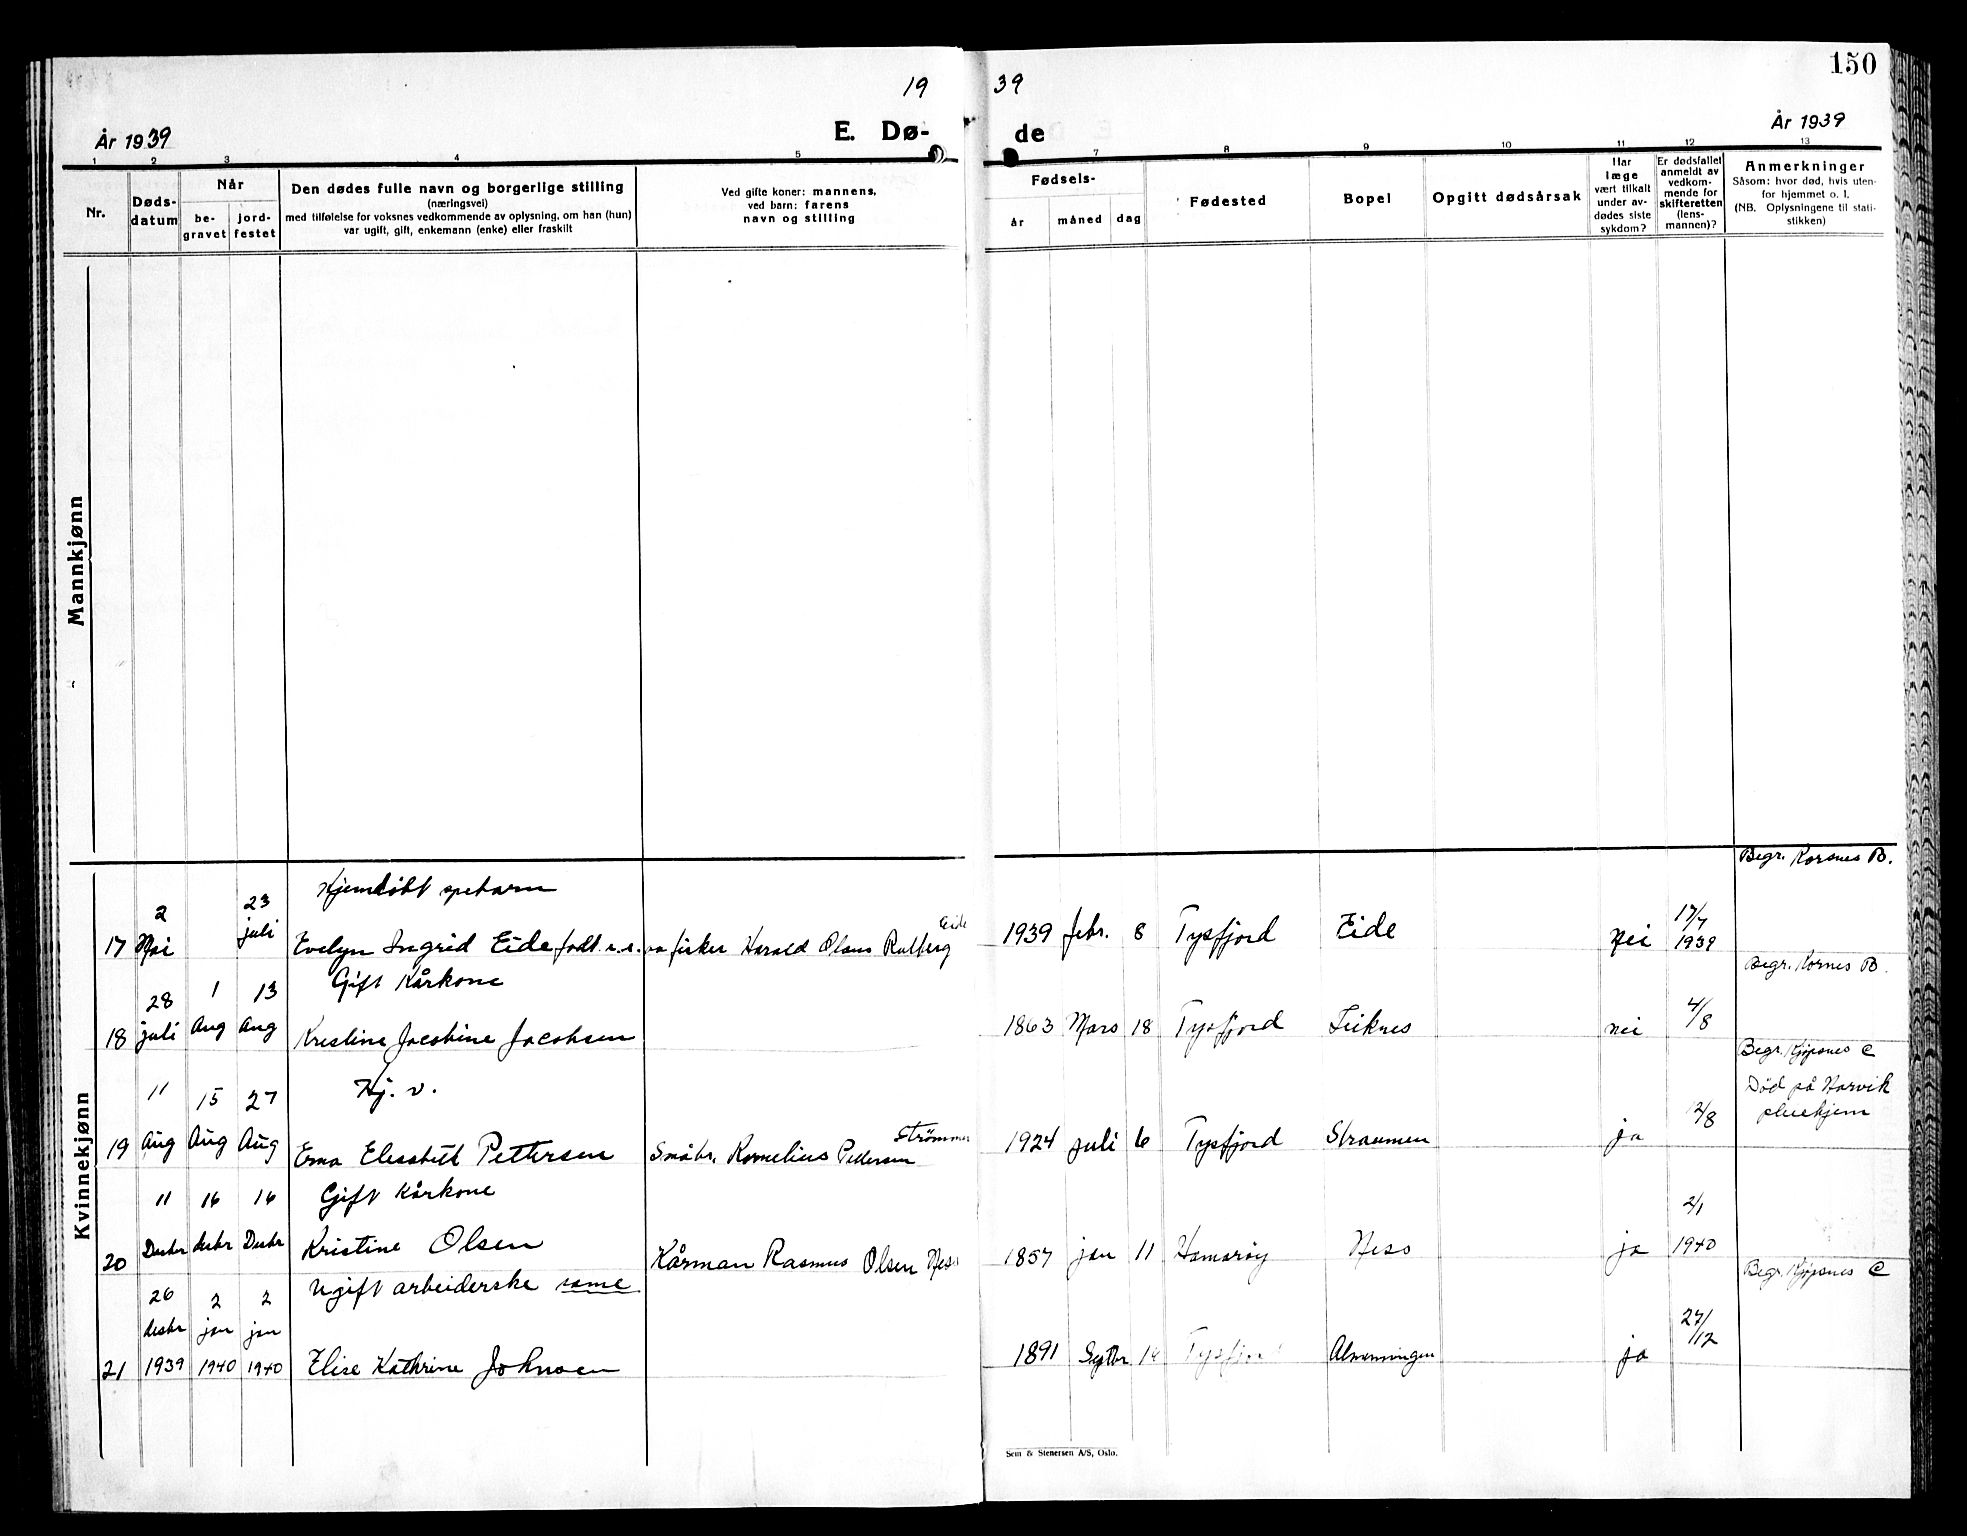 150
19 39
År 1939
E. Dø- de
År 1939
1 2 3 4 5 7 8 9 10 11 12 13
Nr.
Døds-
datum
Når
be-
gravet
jord-
festet
Den dødes fulle navn og borgerlige stilling
(næringsvei)
med tilføielse for voksnes vedkommende av oplysning, om han (hun)
var ugift, gift, enkemann (enke) eller fraskilt
Ved gifte koner: mannens,
ved barn: farens
navn og stilling
Fødsels-
år måned dag
Fødested
Bopel
Opgitt dødsårsak
Har
læge
vært tilkalt
under av-
dødes siste
sykdom?
Er dødsfallet
anmeldt av
vedkom-
mende for
skifteretten
(lens-
mannen)?
Anmerkninger
Såsom: hvor død, hvis uten-
for hjemmet o. l.
(NB. Oplysningene til stati-
stikken)
Mannkjønn
Kvinnekjønn
Begr. Korsnes B.
Hjemdøbt spebarn
2 23
17 Mai juli Evelyn Ingrid Eide fisker Harald Olaus Rulberg Eide 1939 febr. 8 Tysfjord Eide Nei 17/7 1939
Begr. Kornes B.
Gift Kårkone
28 1 13
18 juli Aug Aug Kristine Jacobine Jacobsen 1863 Mars 18 Tysfjord nei 4/8
Begr. Kjøpsnes C
Død på Narvik
pleiehjem
Hj. v.
11 15 27
19 Aug Aug Aug Erna Elisabeth Pettersen Småbr. Kornelius Pedersen 1924 juli 6 Tysfjord Straumen ja 2/8
Gift Kårkone
11 16 16
20 Desbr desbr Desbr Kristine Olsen Kårman Rasmus Olsen Neso 1857 jan 11 Hamarøy Neso ja 2/1 1940
Begr. Kjøpsnes C
Ugift arbeiderske same
26 2 2
desbr jan jan
21 1939 1940 1940 Elise Kathrine Johnsen 1891 Septbr 14 Tysfjord Almenningen ja 27/12
Sem & Stenersen A/S, Oslo.